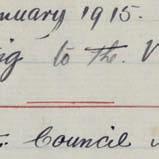 nuary 1915.
ing to the. V
Council